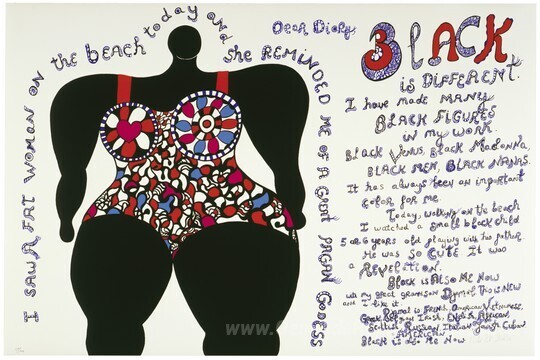 I SAW A FAT WOMAN ON the beach today and she REMINDED ME OF A Great PAGAN Godess
Dear Diary,
BLACK
is DIFFERENT.
I have made MANY
BLACK FIGURES
in my work.
Black Venus, Black Madonna,
BLACK MEN, BLACK NANAS.
It has always been an important
color for me.
Today, walking on the beach
I watched a small black child
5 or 6 years old playing with his father.
He was SO CUTE It was
a REVELATION.
Black is Also Me Now
with my great grandson Djamal This is NEW
and I like it.
Djamal is French, American, Vietnamese,
Greek, Irish, English, African,
Scottish, Russian, Italian Cuban
American
Black is Me Now
www.